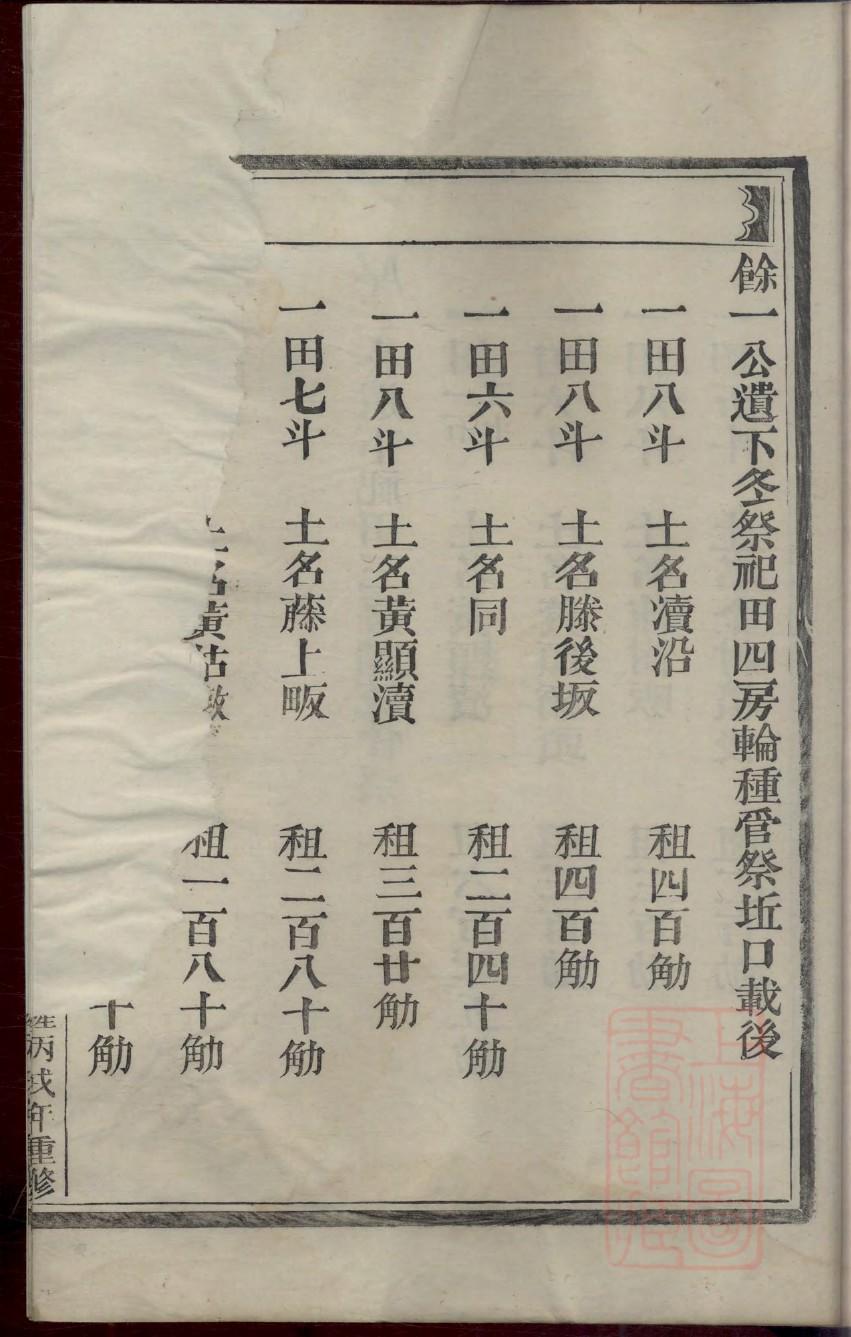 餘一公遺下冬祭祀田四房輪種管祭坵口載後
一田八斗 土名瀆沿 租四百觔
一田八斗 土名滕後坂 租四百觔
一田六斗 土名同 租二百四十觔
一田八斗 土名黃顯瀆 租三百廿觔
一田七斗 土名藤上畈 租二百八十觔
土名黃 租一百八十觔
十觔
丙戌年重修
上海圖書館藏